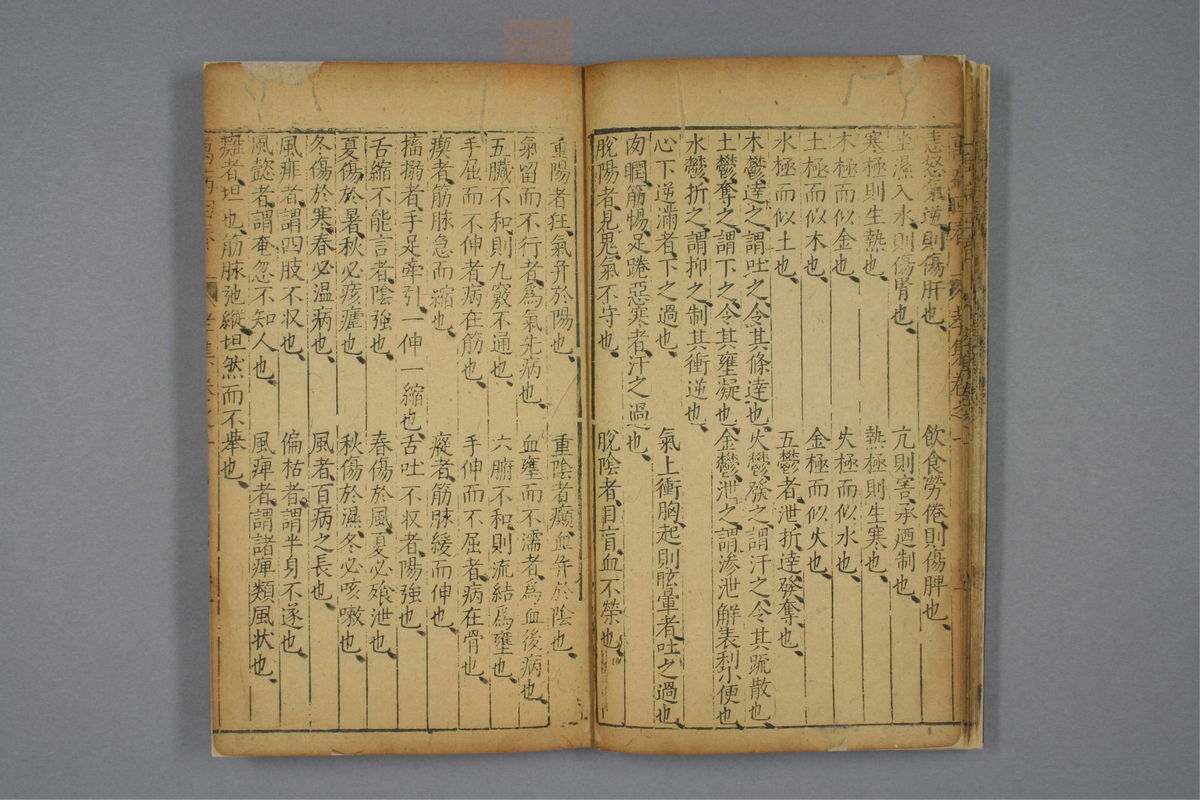 恚怒氣逆則傷肝也 飲食勞倦則傷脾也
坐濕入水則傷腎也 亢則害承廼制也
寒極則生熱也 熱極則生寒也
木極而似金也 火極而似水也
土極而似木也 金極而似火也
水極而似土也 五鬱者泄折達發奪也
木鬱達之謂吐之令其條達也 火鬱發之謂汗之令其疏散也
土鬱奪之謂下之令其壅凝也 金鬱泄之謂滲泄解表利小便也
水鬱折之謂抑之制其衝逆也
心下逆滿者下之過也 氣上衝胸起則眩暈者吐之過也
肉瞤筋惕足踡惡寒者汗之過也
脫陽者見鬼氣不守也 脫陰者目盲血不榮也
重陽者狂氣并於陽也 重陰者癲血并於陰也
氣留而不行者爲氣先病也 血壅而不濡者爲血後病也
五臟不和則九竅不通也 六腑不和則流結爲壅也
手屈而不伸者病在筋也 手伸而不屈者病在骨也
瘈者筋脉急而縮也 瘲者筋脉緩而伸也
搐搦者手足牽引一伸一縮也
舌縮不能言者陰強也 舌吐不收者陽強也
夏傷於暑秋必痎瘧也 春傷於風夏必飱泄也
冬傷於寒春必温病也 秋傷於濕冬必咳嗽也
風痱者謂四肢不収也 風者百病之長也
風懿者謂奄忽不知人也 偏枯者謂半身不遂也
癱者坦也筋脉弛縱坦然而不舉也 風痺者謂諸痺類風状也